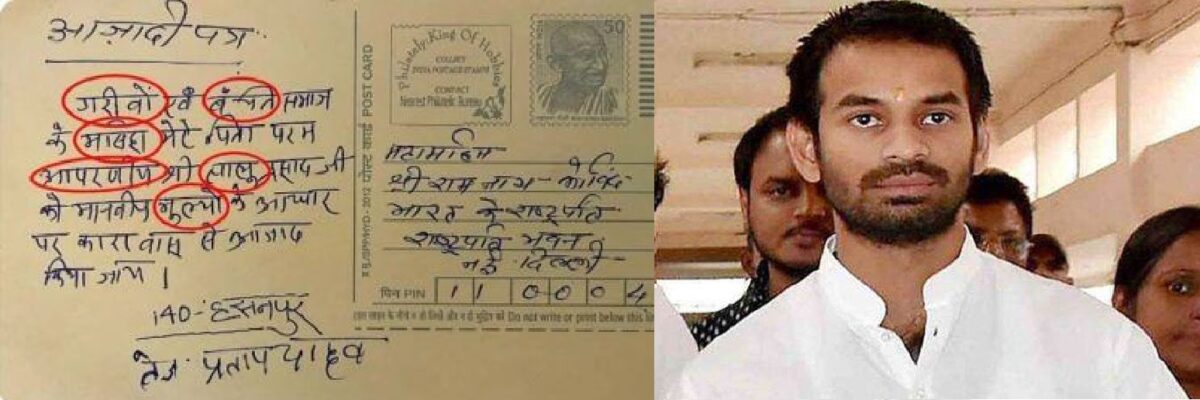 आज़ादी पत्र
गरीबों एवं बंचित समाज
के मासिहा मेरे पिता परम
आदरणीय श्री लालू प्रसाद जी
को मानवीय मुल्यों के आधार
पर कारावास से आजाद
किया जाय।
140-हसनपुर
तेज प्रताप यादव
पोस्ट कार्ड POST CARD
Philately-King Of Hobbies
COLLECT
INDIA POSTAGE STAMPS
CONTACT
Nearest Philatelic Bureau
50
महामहिम
श्री राम नाथ-कोविंद
भारत के राष्ट्रपति
राष्ट्रपति भवन
नई दिल्ली
पिन PIN 1 1 0 0 0 4
Do not write or print below this